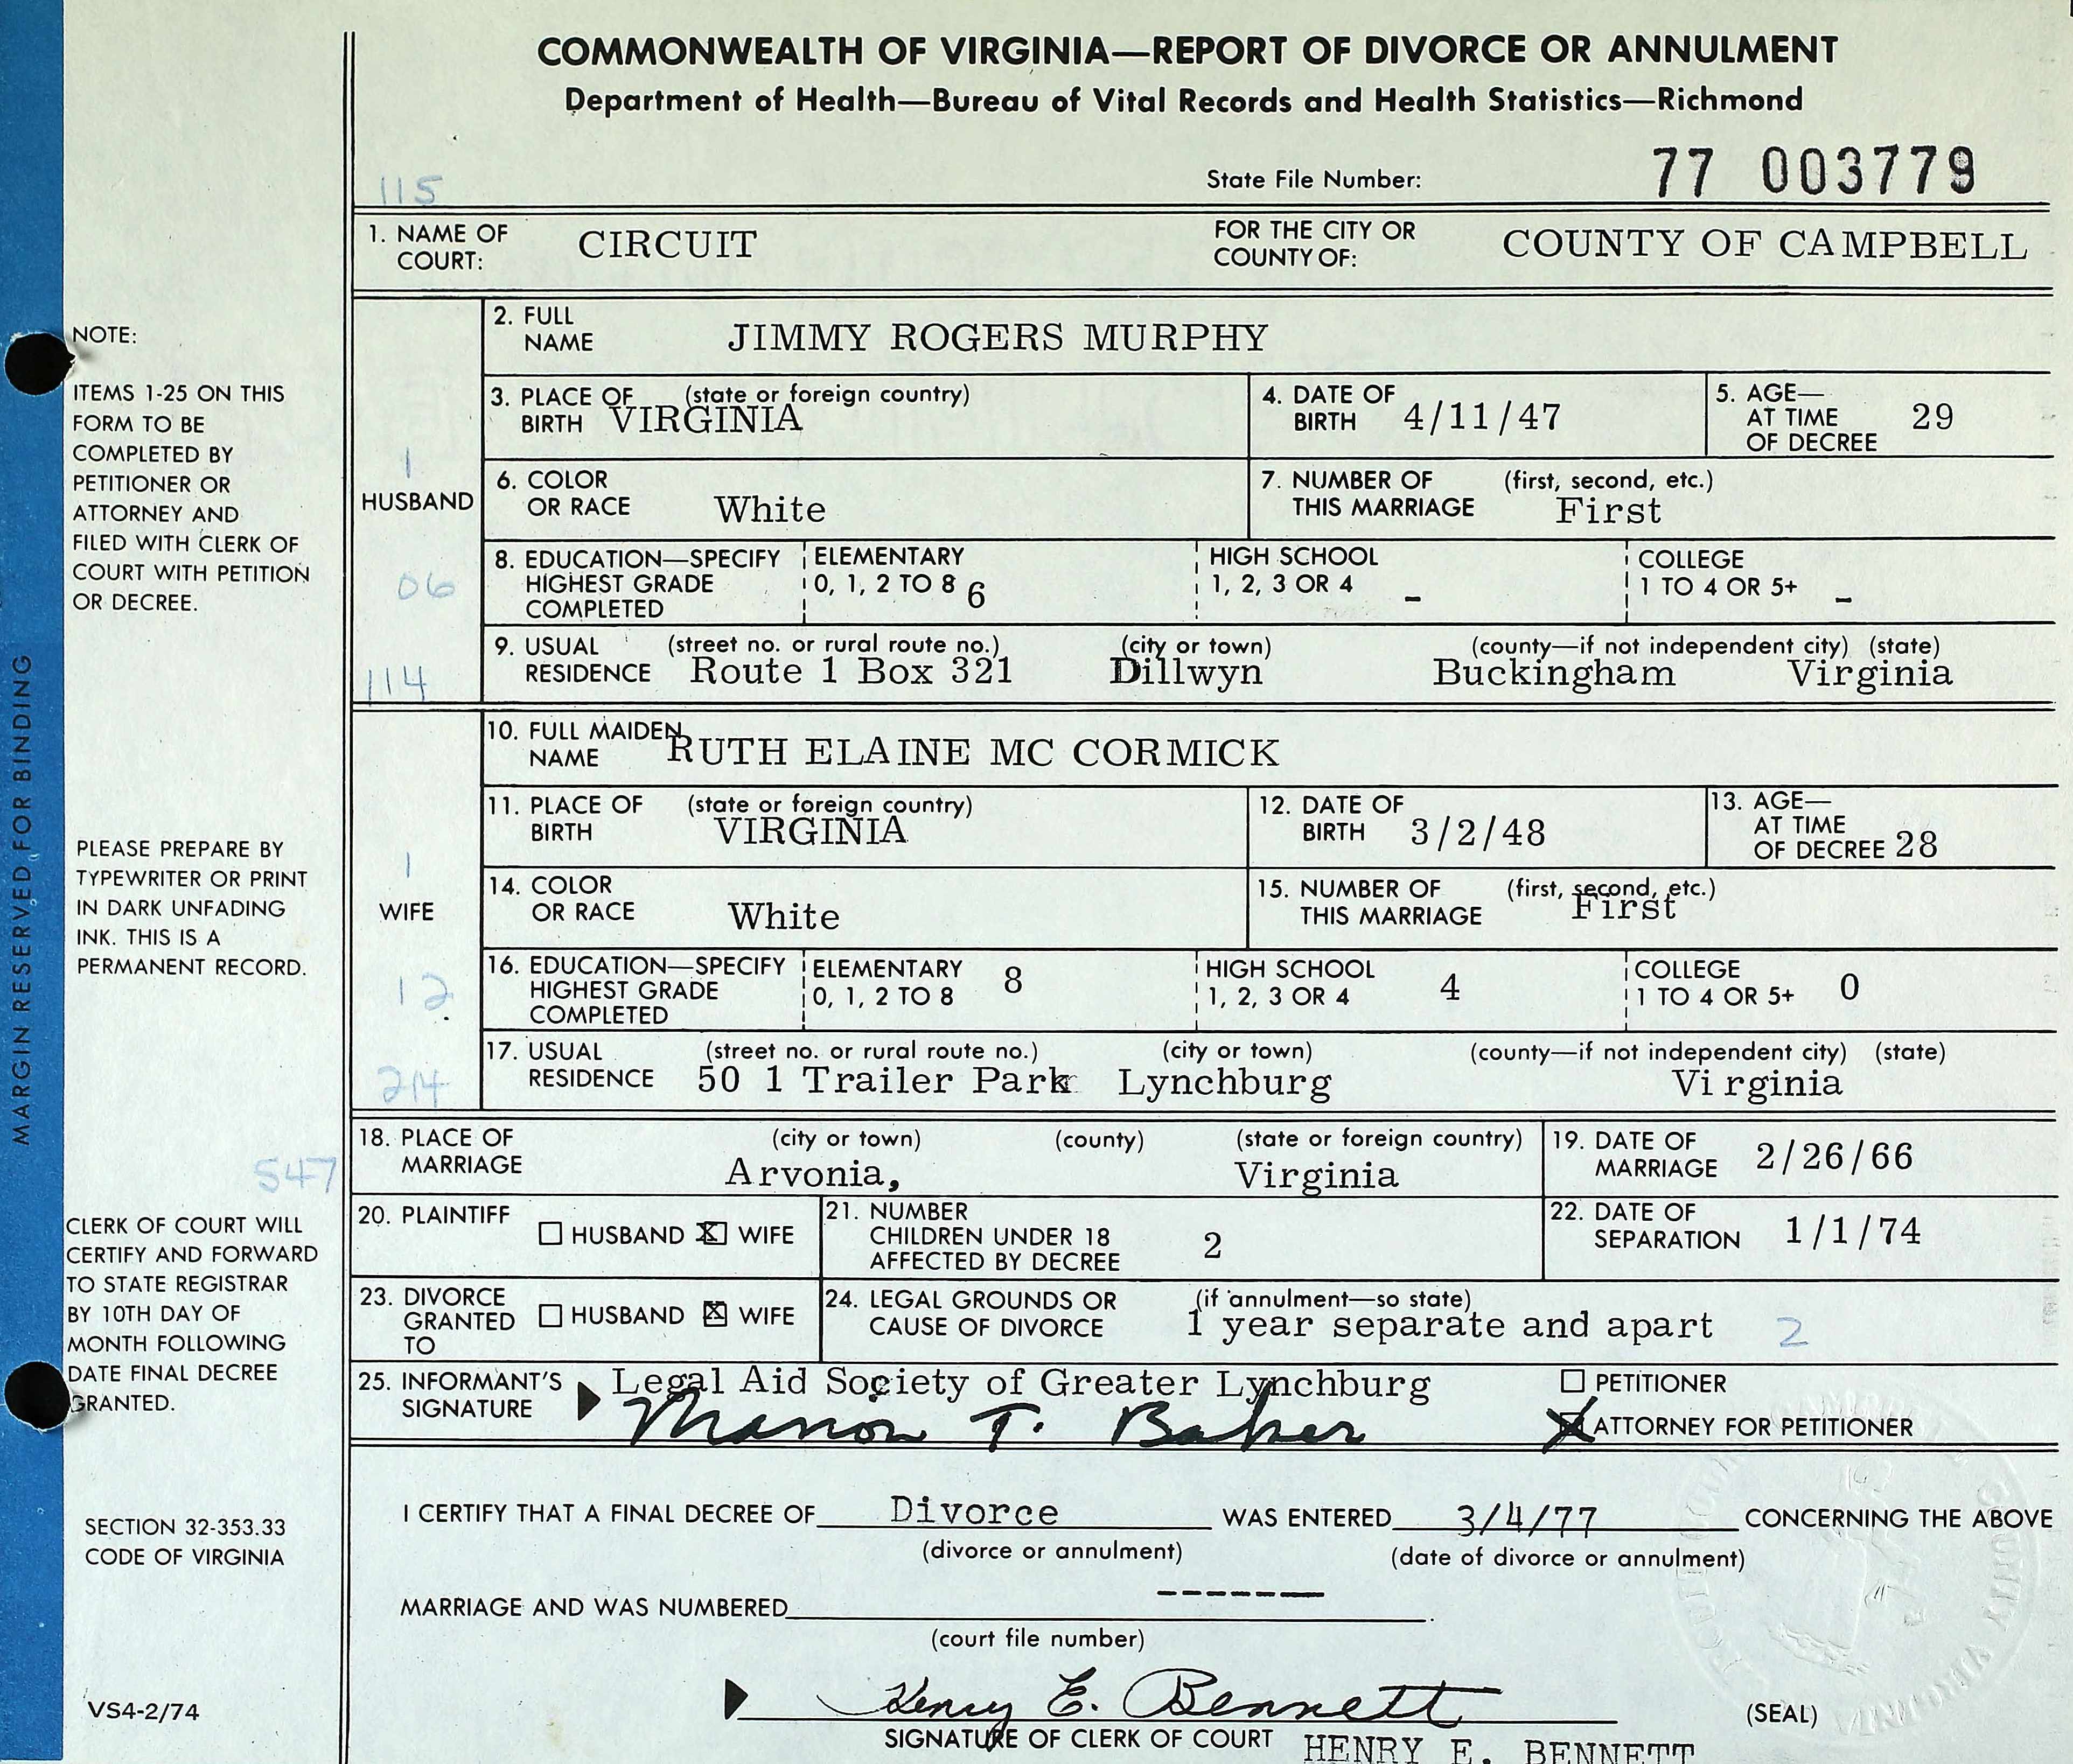 COMMONWEALTH OF VIRGINIA—REPORT OF DIVORCE OR ANNULMENT
Department of Health—Bureau of Vital Records and Health Statistics—Richmond
115
State File Number: 77 003779
1. NAME OF COURT: CIRCUIT FOR THE CITY OR COUNTY OF: COUNTY OF CAMPBELL
HUSBAND
1
06
114
2. FULL NAME JIMMY ROGERS MURPHY
3. PLACE OF BIRTH (state or foreign country) VIRGINIA
4. DATE OF BIRTH 4/11/47
5. AGE— AT TIME OF DECREE 29
6. COLOR OR RACE White
7. NUMBER OF THIS MARRIAGE (first, second, etc.) First
8. EDUCATION—SPECIFY HIGHEST GRADE COMPLETED
ELEMENTARY 0, 1, 2 TO 8 6
HIGH SCHOOL 1, 2, 3 OR 4 -
COLLEGE 1 TO 4 OR 5+ -
9. USUAL RESIDENCE (street no. or rural route no.) (city or town) (county—if not independent city) (state)
Route 1 Box 321 Dillwyn Buckingham Virginia
WIFE
1
12
214
10. FULL MAIDEN NAME RUTH ELAINE MC CORMICK
11. PLACE OF BIRTH (state or foreign country) VIRGINIA
12. DATE OF BIRTH 3/2/48
13. AGE— AT TIME OF DECREE 28
14. COLOR OR RACE White
15. NUMBER OF THIS MARRIAGE (first, second, etc.) First
16. EDUCATION—SPECIFY HIGHEST GRADE COMPLETED
ELEMENTARY 0, 1, 2 TO 8 8
HIGH SCHOOL 1, 2, 3 OR 4 4
COLLEGE 1 TO 4 OR 5+ 0
17. USUAL RESIDENCE (street no. or rural route no.) (city or town) (county—if not independent city) (state)
50 1 Trailer Park Lynchburg Vi rginia
547
18. PLACE OF MARRIAGE (city or town) (county) (state or foreign country)
Arvonia, Virginia
19. DATE OF MARRIAGE 2/26/66
20. PLAINTIFF HUSBAND X WIFE
21. NUMBER CHILDREN UNDER 18 AFFECTED BY DECREE 2
22. DATE OF SEPARATION 1/1/74
23. DIVORCE GRANTED TO HUSBAND X WIFE
24. LEGAL GROUNDS OR CAUSE OF DIVORCE (if annulment—so state)
1 year separate and apart 2
25. INFORMANT'S SIGNATURE Legal Aid Society of Greater Lynchburg
Marion T. Baker
PETITIONER
X ATTORNEY FOR PETITIONER
I CERTIFY THAT A FINAL DECREE OF Divorce WAS ENTERED 3/4/77 CONCERNING THE ABOVE
(divorce or annulment) (date of divorce or annulment)
MARRIAGE AND WAS NUMBERED -------.
(court file number)
Henry E. Bennett
SIGNATURE OF CLERK OF COURT HENRY E. BENNETT
(SEAL)
MARGIN RESERVED FOR BINDING
NOTE:
ITEMS 1-25 ON THIS
FORM TO BE
COMPLETED BY
PETITIONER OR
ATTORNEY AND
FILED WITH CLERK OF
COURT WITH PETITION
OR DECREE.
PLEASE PREPARE BY
TYPEWRITER OR PRINT
IN DARK UNFADING
INK. THIS IS A
PERMANENT RECORD.
CLERK OF COURT WILL
CERTIFY AND FORWARD
TO STATE REGISTRAR
BY 10TH DAY OF
MONTH FOLLOWING
DATE FINAL DECREE
GRANTED.
SECTION 32-353.33
CODE OF VIRGINIA
VS4-2/74